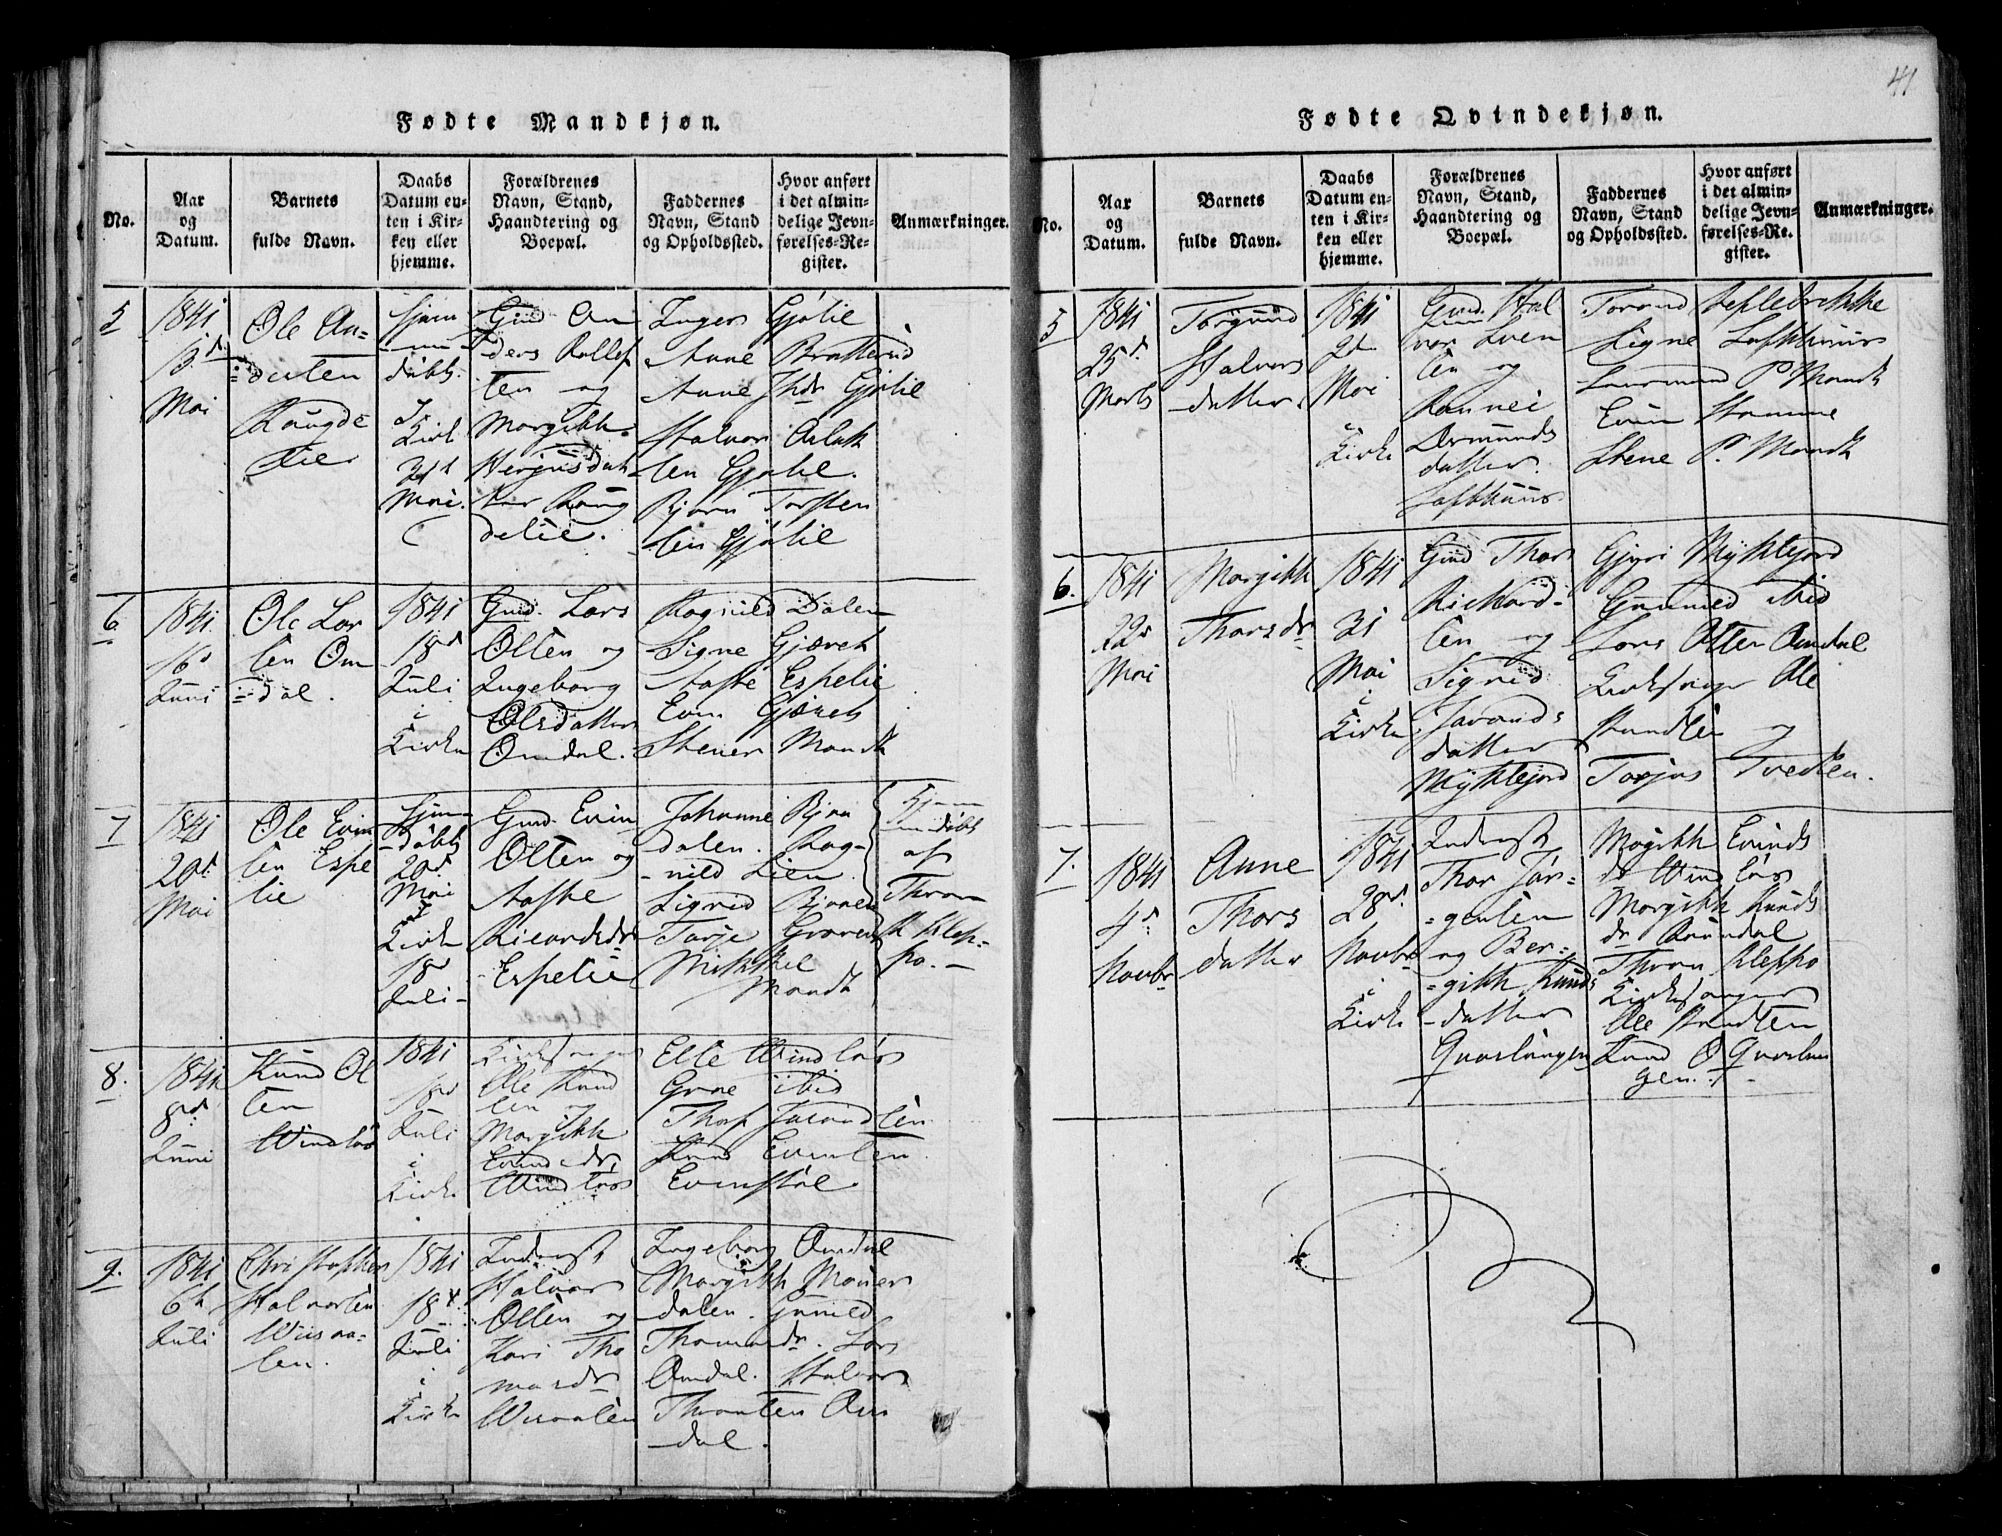 41
Fødte Mandkjøn.
No.
Aar
og
Datum.
Barnets
fulde Navn.
Daabs
Datum en-
ten i Kir-
ken eller
hjemme.
Forældrenes
Navn, Stand,
Haandtering og
Boepæl.
Faddernes
Navn, Stand
og Opholdssted.
Hvor anført
i det almin-
delige Jevn-
førelses-Re-
gister.
Anmærkninger.
5
1841
13d
Mai
Ole An-
dersen
Raugde
lie
Hjem
døbt
Kirk
31t
Mai.
Gmd An
ders Rollef
sen og
Margith
Herjusdat
ter Raug
delie.
Inger Gjølie
Anne Bratterud
Anne Jhdr Gjølie
Halvor Aslak
sen Gjølie.
Bjørn Torsten
sen Gjølie
6
1841
16d
Juni
Ole Lar
sen Om
dal.
1841
18d
Juli
i
Kirke
Gmd. Lars
Olsen og
Ingeborg
Olsdatter
Omdal.
Ragnild Dalen
Signe Gjævek
Aaste Espelie
Even
Stener Mandt
7
1841
20d
Mai
Ole Evin
sen Espe
lie
Hjem-
døbt
20d
Mai
Kirke
18d
Juli
Gmd. Evin
Olsen og
Aaste
Ricardsdr
Espelie
Johanne Bjaa
dalen. Rag-
nild Lien
Signed
Tarje Graven
Mikkel
Mandt
Hjem
døbt
af
Thron
K Klep-
po.
8.
1841
8d
Juni
Knud Ol
sen
Windlaas
1841
18d
Juli
i
Kirke
Kirkesanger
Ole Knud
sen og
Margith
Evindsdr
Windlaas
Elle Windlaas
Groe ibid
Thor Javandsen
Knud Evensen
Evenstøl
9.
1841
6te
Juli
Christopher
Halvorsen
1841
18d
Juli
i
Kirke
Inderst
Halvor
Olsen og
Kari Tho
masdr
Ingeborg Amdal
Margith
dalen. Gunild
Thomasdr. Lars
Amdal. Halvor
Throndsen Am
dal.
Fødte Qvindekjøn.
No.
Aar
og
Datum.
Barnets
fulde Navn.
Daabs
Datum en-
ten i Kir-
ken eller
hjemme.
Forældrenes
Navn, Stand,
Haandtering og
Boepæl.
Faddernes
Navn, Stand
og Opholdssted.
Hvor anført
i det almin-
delige Jevn-
førelses-Re-
gister.
Anmærkninger.
5
1841
25d
Marts
Torgund
Halvors
datter
1841
2d
Mai
i
Kirke
Gmd. Hal
vor Sven
sen og
Rannei
Aamunds
datter
Lofthuus
Torand
Signe Lofthuus
P Mandt
Even
Stene P. Mandt
6.
1841
22d
Mai
Margith
Thorsdr
1841
31
Mai
i
Kirke
Gmd Thor
Rickard-
sen og
Sigrid
Javands
datter
Myklejord
Gjyri Myklejord
Gunnild ibid
Lars Olsen Amdal
Kirkesanger Ole
Knudsen og
Torjus Tvedten.
7.
1841
4d
Novbr
Anne
Thors
datter
1841
28d
Novbr
i
Kirke
Inderst
Thor Jør-
gensen
og Ber-
gith Knuds
datter
Qvaslungen
Margith Evinds
dr Windlaas
Margith Knuds
dr
Thron Kleppo
Kirkesanger
Ole Knudsen
Knud O Qvaslun
gen.